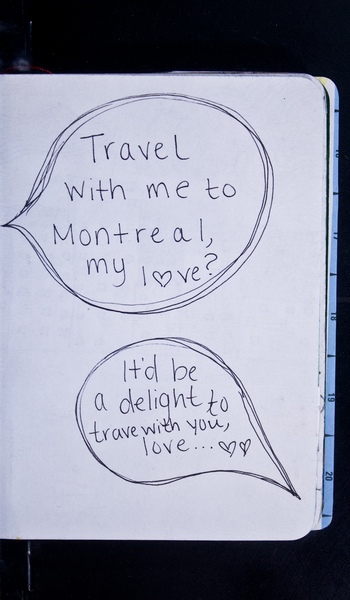 Travel
with me to
Montreal,
my l♡ve?
It'd be
a delight to
trave with you,
love... ♡♡
18
19
20